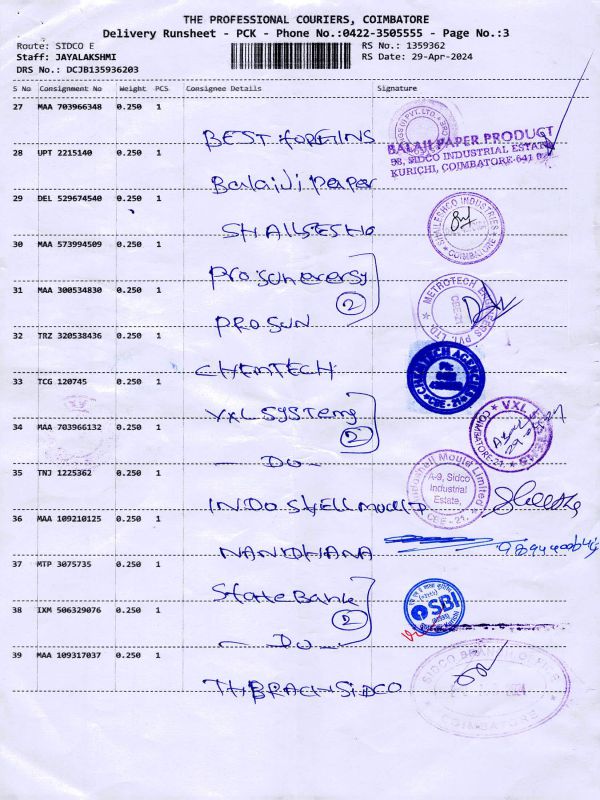 THE PROFESSIONAL COURIERS, COIMBATORE
Delivery Runsheet - PCK - Phone No.:0422-3505555 - Page No.:3
Route: SIDCO E
RS No.: 1359362
Staff: JAYALAKSHMI
RS Date: 29-Apr-2024
DRS No.: DCJB135936203
S No Consignment No Weight PCS Consignee Details Signature
27 MAA 703966348 0.250 1
BEST
BALAJI PAPER PRODUCT
98, SIDCO INDUSTRIAL ESTATE
KURICHI, COIMBATORE-641
28 UPT 2215140 0.250 1
Balaji Paper
29 DEL 529674540 0.250 1
INDUSTRIES
COIMBATORE
30 MAA 573994509 0.250 1
Prosun energy
2
31 MAA 300534830 0.250 1
PROSUN
METROTECH
PVT. LTD.
32 TRZ 320538436 0.250 1
CHEMTECH
CBE - 21
33 TCG 120745 0.250 1
VXL SYSTEMS
2
VXL
COIMBATORE-21
34 MAA 703966132 0.250 1
- DO -
35 TNJ 1225362 0.250 1
INDO SHELL MOULD
Indoshell Mould Limited
A-9, Sidco
Industrial
Estate,
CBE - 21.
36 MAA 109210125 0.250 1
NANDHANA
37 MTP 3075735 0.250 1
State Bank
2
SBI
38 IXM 506329076 0.250 1
- DO -
39 MAA 109317037 0.250 1
SIDCO
SIDCO BRANCH OFFICE
COIMBATORE